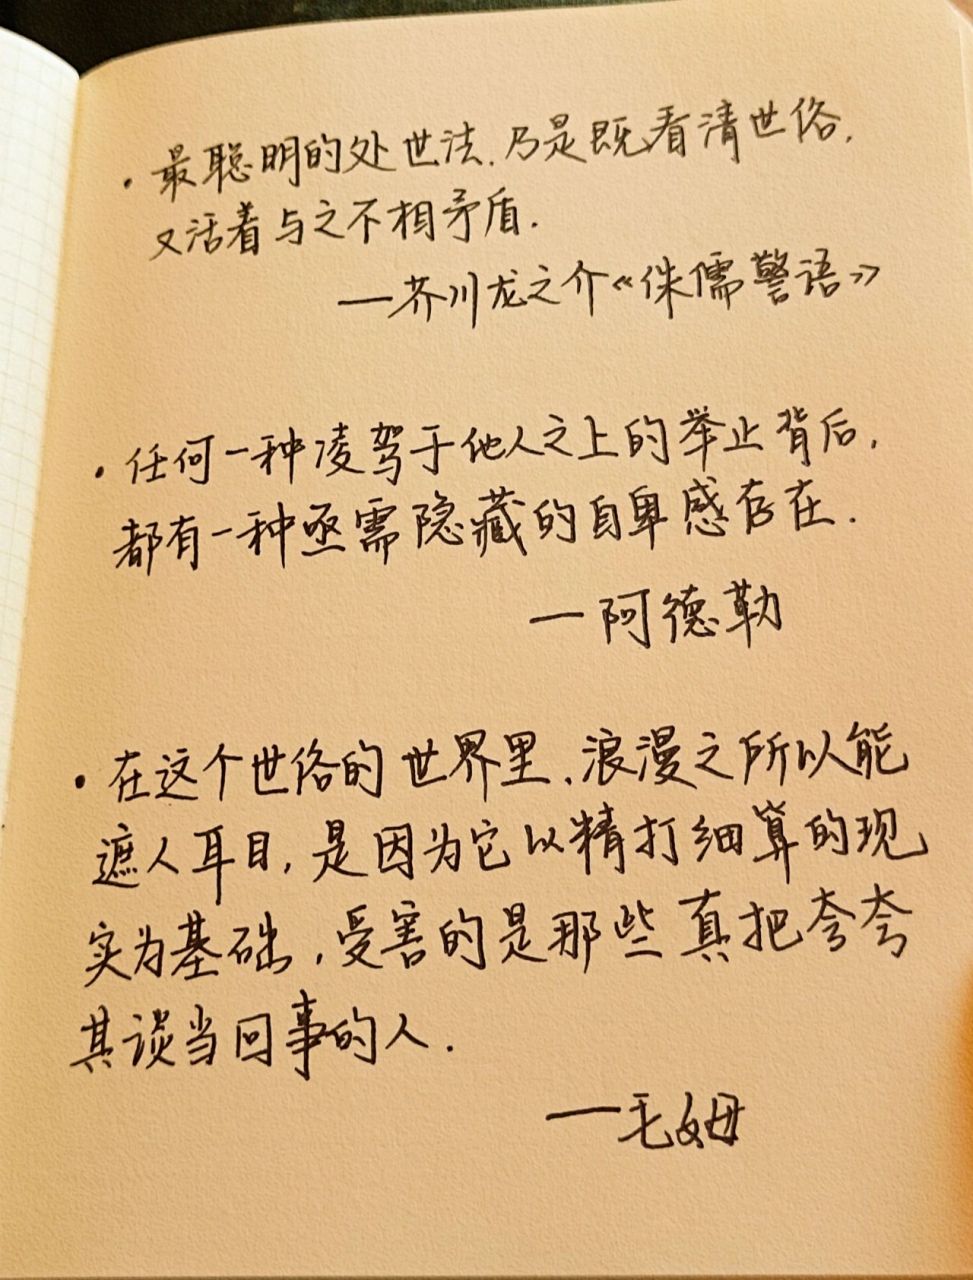 ·最聪明的处世法.乃是既看清世俗,
又活着与之不相矛盾.
—芥川龙之介《侏儒警语》
·任何一种凌驾于他人之上的举止背后,
都有一种亟需隐藏的自卑感存在.
—阿德勒
·在这个世俗的世界里.浪漫之所以能
遮人耳目,是因为它以精打细算的现
实为基础,受害的是那些真把夸夸
其谈当回事的人.
—毛姆